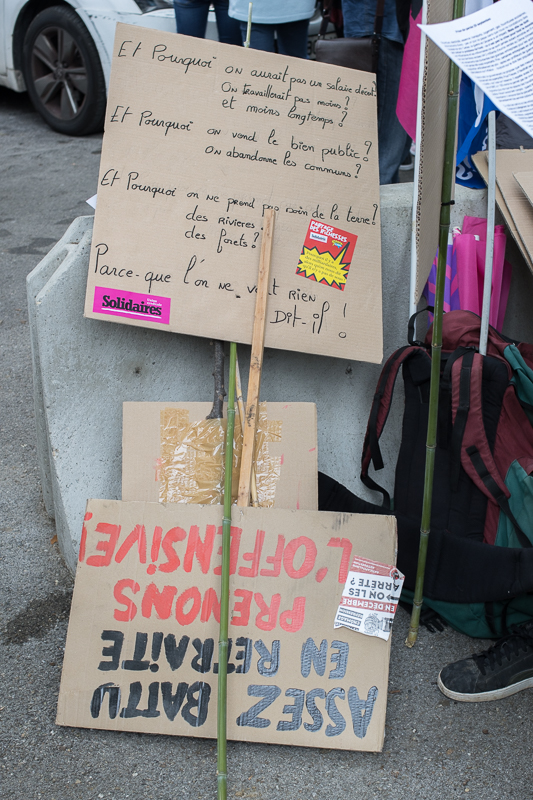 Et Pourquoi on aurait pas un salaire décent?
On travaillerait pas moins?
et moins longtemps?
Et Pourquoi on vend le bien public?
On abandonne les communs?
Et Pourquoi on ne prend pas soin de la terre?
des rivières
des forêts?
Parce-que l'on ne vaut rien
Dit-il!
Solidaires
PARTAGE
DES RICHESSES
ASSEZ BATTU
EN RETRAITE
PRENONS
L'OFFENSIVE!
EN DÉCEMBRE
ON LES
ARRÊTE?